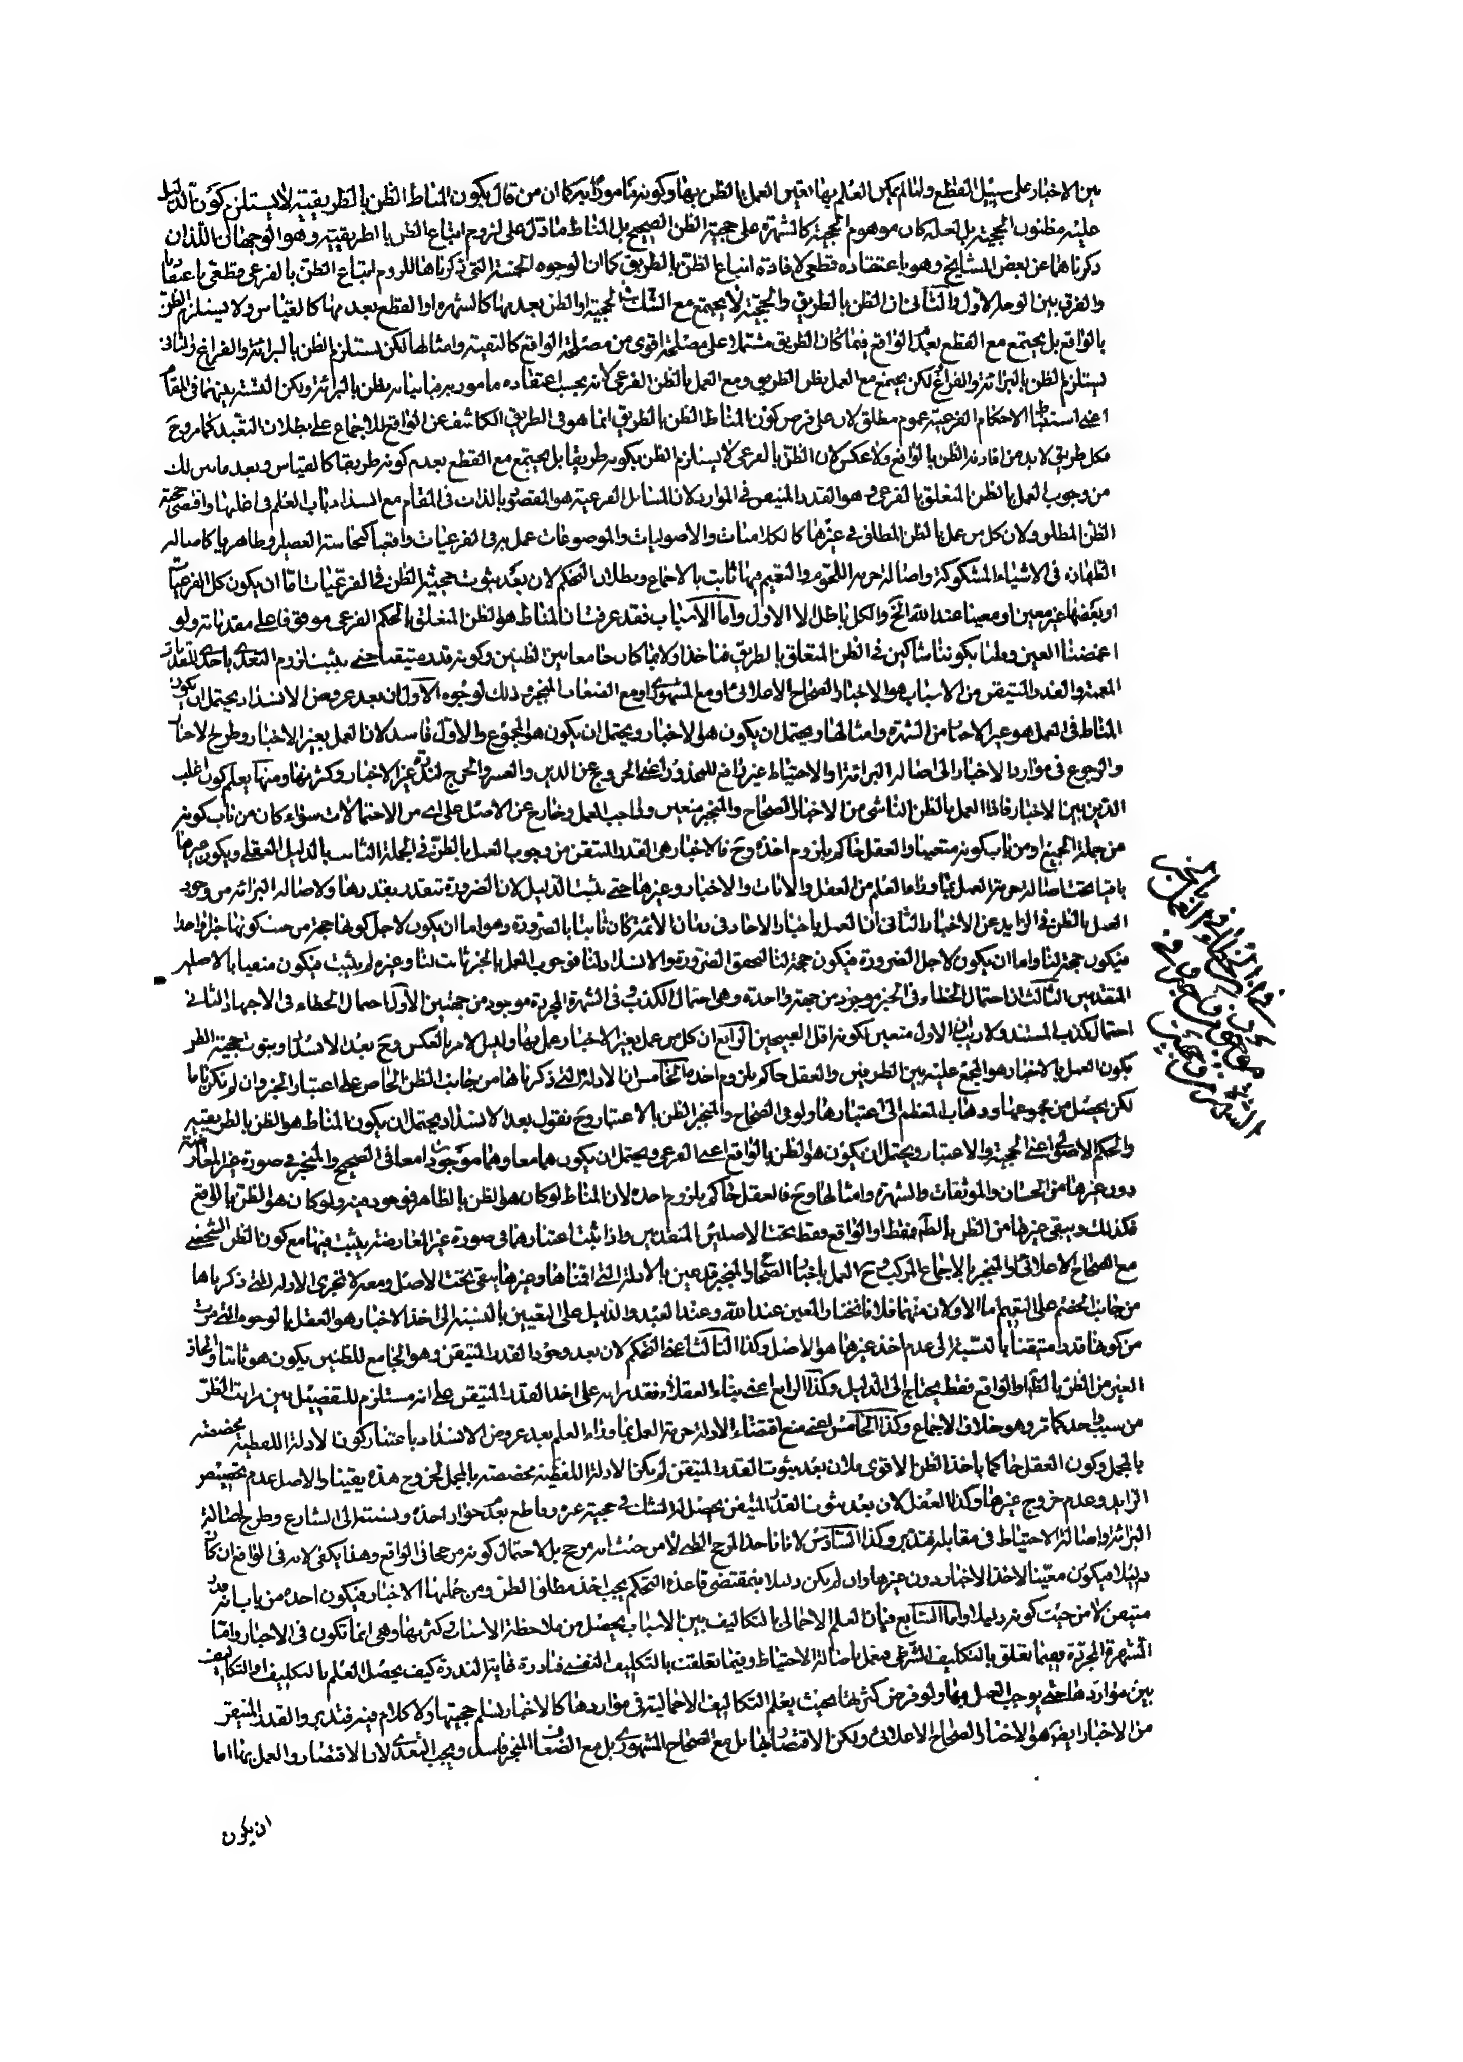 بين الاخبار على سبيل القطع ولما لم يمكن العلم بها تعين العمل بالظن بها وكونه مأمورا به كما ان من قال بكون المناط الظن بالطريقية لا يستلزم كون الدليل
عليه مظنون الحجية بل لعله كان موهوم الحجية كالشهرة على حجية الظن الصحيح بل المناط ما دل على لزوم اتباع الظن بالطريقية وهو الوجهان اللذان
ذكرناهما عن بعض المشايخ وهو باعتقاده قطعي لافادة اتباع الظن بالطريق كما ان الوجوه الخمسة التي ذكرناها للزوم اتباع الظن بالفرعي قطعي باعتقادنا
والفرق بين الوجه الاول والثاني ان الظن بالطريق والحجية لا يجتمع مع الشك في الحجية او الظن بعدمها كالشهرة او القطع بعدمها كالقياس ولا يستلزم الظن
بالواقع بل يجتمع مع القطع بعدم الواقع فيما كان الطريق مشتملا على مصلحة اقوى من مصلحة الواقع كالتقية وامثالها لكن يستلزم الظن بالبرائة والفراغ والثاني
يستلزم الظن بالبرائة والفراغ لكن يجتمع مع العمل بظن الطريق ومع العمل بالظن الفرعي لانه بحسب اعتقاده مأمور به فباتيانه يظن بالبرائة ولكن النسبة بينهما في المقام
اعني استنباط الاحكام الفرعية عموم مطلق لان على فرض كون المناط الظن بالطريق انما هو في الطريق الكاشف عن الواقع للاجماع على بطلان التعبد كما مر وح
فكل طريق لا بد من افادته الظن بالواقع ولا عكس لان الظن بالفرعي لا يستلزم الظن بكونه طريقا بل يجتمع مع القطع بعدم كونه طريقا كالقياس وبعد ما بين لك
من وجوب العمل بالظن المتعلق بالفرعي وهو القدر المتيقن في الموارد لان المسائل الفرعية هو المقصود بالذات في المقام مع انسداد باب العلم في اغلبها واقتضى حجية
الظن المطلق ولان كل من عمل بالظن المطلق في غيرها كالكلاميات والاصوليات والموضوعات عمل به في الفرعيات واقعيا كنجاسة العصير وظاهريا كاصالة
الطهارة في الاشياء المشكوكة واصالة حرمة اللحوم والتعميم فيها ثابت بالاجماع وبطلان التحكم لان بعد ثبوت حجية الظن في الفرعيات اما ان يكون كل الفرعيات
او بعضها غير معين او معينا عند الله الخ والكل باطل الا الاول واما الاسباب فقد عرفت ان المناط هو الظن المتعلق بالحكم الفرعي موقوفا على مقدماته ولو
اغمضنا العين وقلنا بكوننا شاكين في الظن المتعلق بالطريق فناخذ اولا بما كان جامعا بين الظنين وكونه قدرا متيقنا حتى يثبت لزوم التعدي باحدى
المعممة والقدر المتيقن من الاسباب هو الاخبار الصحاح الاعلائي او مع المشهوري او مع الضعاف المنجبرة وذلك لوجوه الاول ان بعد عروض الانسداد يحتمل ان يكون
المناط في العمل هو غير الاخبار من الشهرة وامثالها ويحتمل ان يكون هو الاخبار ويحتمل ان يكون هو المجموع والاول فاسد لان العمل بغير الاخبار وطرح الاخبار
والرجوع في موارد الاخبار الى اصالة البرائة او الاحتياط غير دافع للمحذور اعني الخروج عن الدين والعسر والحرج لندرة غير الاخبار وكثرتها ومنها يعلم كون اغلب
الدين بين الاخبار فاذا العمل بالظن الناشي من الاخبار الصحاح والمنجبر متعين وواجب العمل وخارج عن الاصل على اي من الاحتمالات سواء كان من باب كونه
من جملة الحجتين او من باب كونه متعينا والعقل حاكم بلزوم اخذه وح فالاخبار هي القدر المتيقن من وجوب العمل بالظن في الجملة الثابت بالدليل العقلي ويكون غيرها
باقيا تحت اصالة حرمة العمل بما وراء العلم من العقل والايات والاخبار وغيرها حتى يثبت الدليل لان الضرورة تتقدر بقدرها ولاصالة البرائة من وجوب
العمل بالظن في الزايد عن الاخبار والثاني ان العمل باخبار الاحاد في زمان الائمة كان ثابتا بالضرورة وهو اما ان يكون لاجل كونها حجة من حيث كونها خبرا واحدا
فيكون حجة لنا واما ان يكون لاجل الضرورة فيكون حجة لنا لتحقق الضرورة والانسداد لنا فوجوب العمل بالخبر ثابت لنا وغيره لم يثبت فيكون منفيا بالاصلين
المتقدمين الثالث ان احتمال الخطاء في الخبر موجود من جهة واحدة وهي احتمال الكذب وفي الشهرة المجردة موجود من جهتين الاول احتمال الخطاء في الاجتهاد الثاني
احتمال كذب المستند ولا ريب ان الاول متعين لكونه اقل القبيحين الرابع ان كل من عمل بغير الاخبار عمل بها وليس الامر بالعكس وح بعد الانسداد وثبوت حجية الظن
يكون العمل بالاخبار هو المجمع عليه بين الطرفين والعقل حاكم بلزوم اخذه الخامس ان الادلة التي ذكرناها من جانب الظن الخاص على اعتبار الخبر وان لم تكن تاما
لكن يحصل من مجموعها وذهاب المعظم الى اعتبارها ولو في الصحاح والمنجبر الظن بالاعتبار وح نقول بعد الانسداد يحتمل ان يكون المناط هو الظن بالطريقية
والحكم الاصولي اعني الحجية والاعتبار ويحتمل ان يكون هو الظن بالواقع اعني الفرعي ويحتمل ان يكون هما معا وهما موجودان معا في الصحيح والمنجبر في صورة غير المعارضة
دون غيرها من الحسان والموثقات والشهرة وامثالها وح فالعقل حاكم بلزوم اخذه لان المناط لو كان هو الظن بالظاهر فموجود فيه ولو كان هو الظن بالواقع
فكذلك ويبقى غيرها من الظن بالظاهر فقط او الواقع فقط تحت الاصلين المتقدمين واذا ثبت اعتبارهما في صورة غير المعارضة يثبت فيها مع كون الظن الشخصي
مع الصحاح الاعلائي والمنجبر بالاجماع المركب وح العمل باخبار الصحاح والمنجبر قد عين بالادلة التي اقمناها وغيرها يبقى تحت الاصل ومعه لا تجري الادلة التي ذكرناها
من جانب الخصم على التعميم اما الاولان منهما فلانا نختار المعين عند الله وعند العبد والدليل على التعيين بالنسبة الى اخذ الاخبار هو العقل بالوجوه التي مرت
من كونها قدرا متيقنا بالنسبة الى عدم اخذ غيرها هو الاصل وكذا الثالث اعني التحكم لان بعد وجود القدر المتيقن وهو الجامع للظنين يكون هو ثابتا والتجاوز
العين من الظن بالظاهر او الواقع فقط يحتاج الى الدليل وكذا الرابع اعني بناء العقلاء فقد مر انه على اخذ القدر المتيقن على انه مستلزم للتفصيل بين مراتب الظن
من سبب واحد كما مر وهو خلاف الاجماع وكذا الخامس اعني منع اقتضاء الادلة حرمة العمل بما وراء العلم بعد عروض الانسداد باعتبار كون الادلة اللفظية مخصصة
بالمجمل وكون العقل حاكما باخذ الظن الاقوى فلان بعد ثبوت القدر المتيقن لم يكن الادلة اللفظية مخصصة بالمجمل لخروج هذه يقينا والاصل عدم تخصيص
الزايد وعدم خروج غيرها وكذا العقل لان بعد ثبوت القدر المتيقن يحصل له الشك في حجية غيره وقاطع بعدم جواز اخذه ونسبته الى الشارع وطرح اصالة
البرائة واصالة الاحتياط في مقابله فتدبر وكذا السادس لانا ناخذ المرجح الظني لا من حيث انه مرجح بل لاحتمال كونه مرجحا في الواقع وهذا يكفي لانه في الواقع ان كان
دليلا فيكون معينا لاخذ الاخبار دون غيرها وان لم يكن دليلا فبمقتضى قاعدة التحكم يجب اخذ مطلق الظن ومن جملتها الاخبار فيكون اخذه من باب انه قدر
متيقن لا من حيث كونه دليلا واما السابع فبان العلم الاجمالي بالتكاليف بين الاسباب يحصل من ملاحظة الاسباب وكثرتها وهي انما تكون في الاخبار واما
الشهرة المجردة فيما تعلق بالتكليف الشرعي فنعمل باصالة الاحتياط وفيما تعلقت بالتكليف النفسي فنادرة غاية الندرة كيف يحصل العلم بالتكليف او التكاليف
بين مواردها حتى يوجب العمل بها ولو فرض كثرتها بحيث يعلم التكاليف الاجمالية في مواردها كالاخبار نسلم حجيتها ولا كلام فيه فتدبر والقدر المتيقن
من الاخبار ايضا هو الاخبار الصحاح الاعلائي ولكن الاقتصار بها بل مع الصحاح المشهوري بل مع الضعاف المنجبرة فاسد ويجب التعدي لان الاقتصار والعمل بها اما
ان يكون